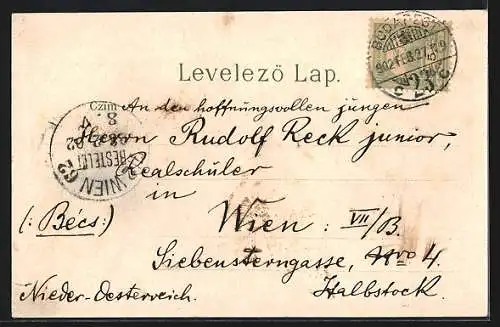 BUDAPEST
902 FEB. 27.
C 23 C
Levelező Lap.
Czim
An den hoffnungsvollen jungen
Herrn Rudolf Reck junior,
Realschüler
in
(: Bécs:) Wien: VII/B.
Siebensterngasse, Nro 4.
Nieder-Oesterreich. Halbstock.
WIEN 62
BESTELLT